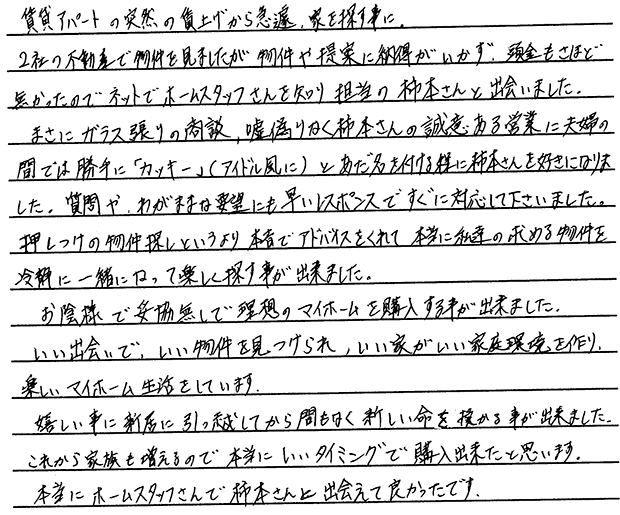 賃貸アパートの突然の賃上げから急遽、家を探す事に。
2社の不動産で物件を見ましたが物件や提案に納得がいかず、頭金もさほど
無かったのでネットでホームスタッフさんを知り担当の柿本さんと出会いました。
まさにガラス張りの商談、嘘偽りなく柿本さんの誠意ある営業に夫婦の
間では勝手に「カッキー」(アイドル風に)とあだ名を付ける様に柿本さんを好きになりま
した。質問や、わがままな要望にも早いレスポンスですぐに対応して下さいました。
押しつけの物件探しというより本音でアドバイスをくれて本当に私達の求める物件を
冷静に一緒になって楽しく探す事が出来ました。
お陰様で妥協無しで理想のマイホームを購入する事が出来ました。
いい出会いで、いい物件を見つけられ、いい家がいい家庭環境を作り、
楽しいマイホーム生活をしています。
嬉しい事に新居に引っ越してから間もなく新しい命を授かる事が出来ました。
これから家族も増えるので本当にいいタイミングで購入出来たと思います。
本当にホームスタッフさんで柿本さんと出会えて良かったです。